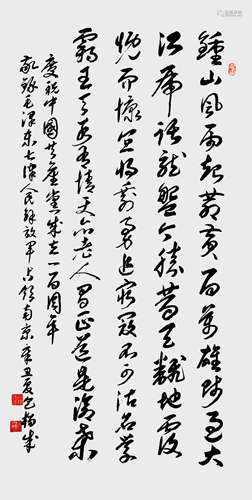 鍾山風雨起蒼黃百萬雄師過大
江虎踞龍盤今勝昔天翻地覆
慨而慷宜將剩勇追窮寇不可沽名學
霸王天若有情天亦老人間正道是滄桑
慶祝中國共產黨成立一百周年
敬錄毛澤東七律人民解放軍占領南京辛丑夏